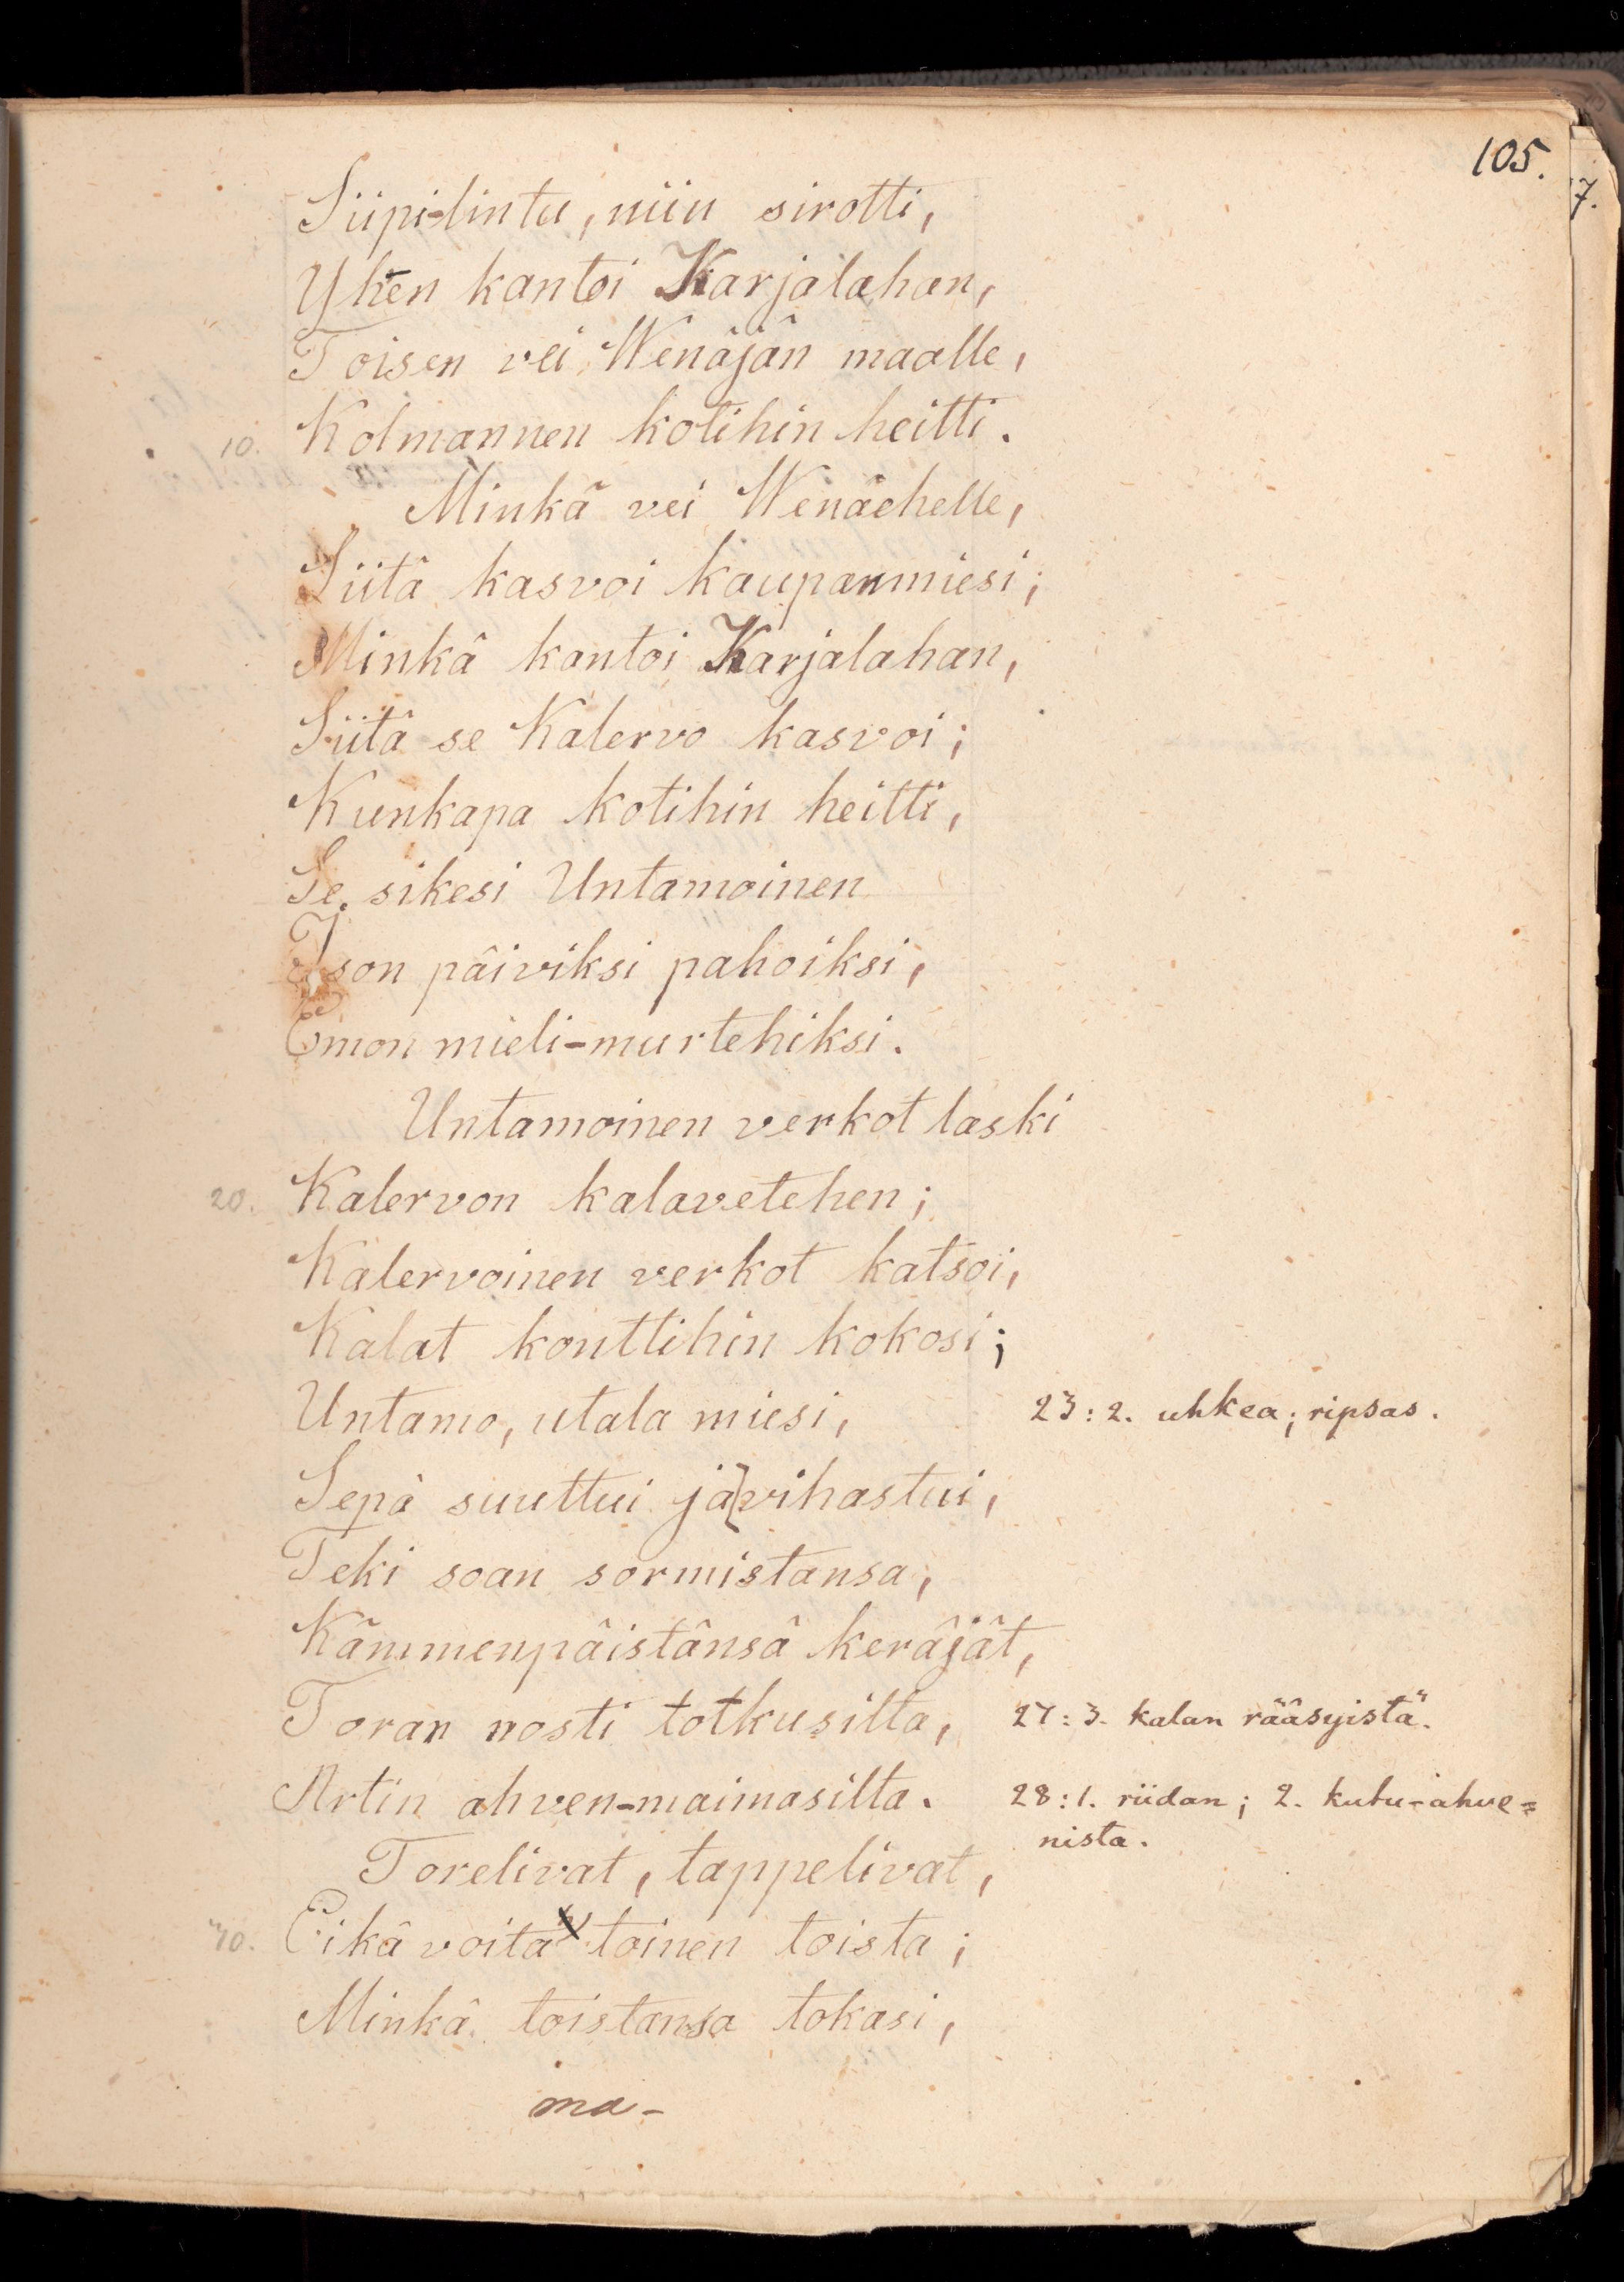 105.
7.
Siipi-lintu, niin sirotti,
Yhen kantoi Karjalahan,
Toisen vei Wenäjän maalle,
10. Kolmannen kotihin heitti.
Minkä vei Wenäehelle,
Siitä kasvoi kaupanmiesi;
Minkä kantoi Karjalahan,
Siitä se Kalervo kasvoi;
Kunkapa kotihin heitti,
Se sikesi Untamoinen
Ison päiviksi pahoiksi,
Emon mieli-murtehiksi.
Untamoinen verkot laski
20. Kalervon kalavetehen;
Kalervoinen verkot katsoi,
Kalat konttihin kokosi;
Untamo, utala miesi, 23:2. uhkea; ripsas.
Sepä suuttui ja vihastui,
Teki soan sormistansa,
Kämmenpäistänsä keräjät,
Toran nosti totkusilta, 27:3. kalan rääsyistä.
Artin ahven-maimasilta. 28:1. riidan; 2. kutu-ahve=
nista.
Torelivat, tappelivat,
30. Eikä voita toinen toista;
Minkä toistansa tokasi,
ma-